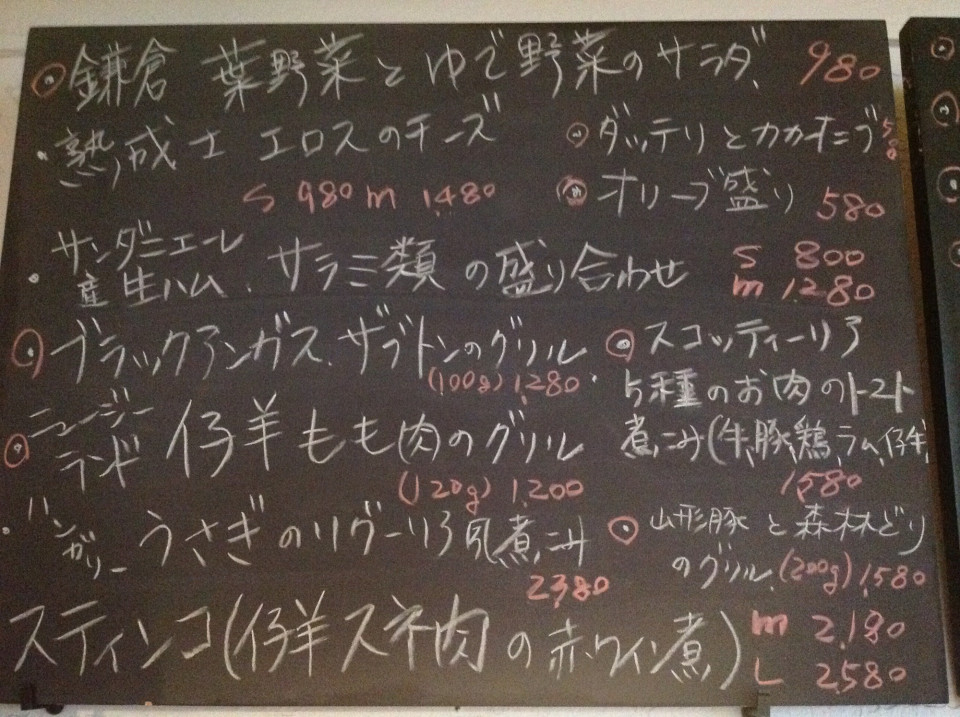 鎌倉 葉野菜とゆで野菜のサラダ 980
熟成士 エロスのチーズ
S 980 m 1,480
ダッテリとカカオニブ 580
オリーブ盛り 580
サンダニエーレ
産生ハム、サラミ類の盛り合わせ
S 800
m 1,280
ブラックアンガス、ザブトンのグリル
(100g) 1,280
ニュージー
ランド 仔羊もも肉のグリル
(120g) 1,200
ハンガリー うさぎのリグーリア風煮こみ
2380
スコッティーリア
5種のお肉のトマト
煮こみ(牛、豚、鶏、ラム、仔牛
1,580
山形豚と森林どり
のグリル (200g) 1,580
スティンコ(仔羊スネ肉の赤ワイン煮)
m 2,180
L 2,580